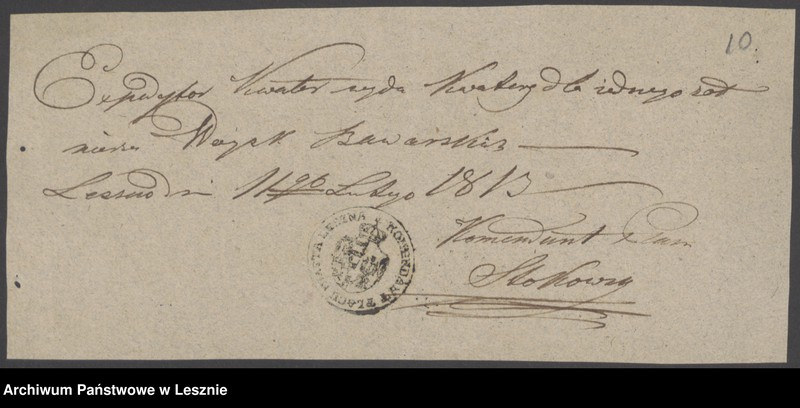 10.
Expedytor Kwater wyda Kwaterę dla iednego żoł
nierza Woysk Bawarskich
Leszno dn 11go Lutego 1813
Komendant Placu
Stokowsky
KOMENDANT PLACU MIASTA LESZNA
Archiwum Państwowe w Lesznie